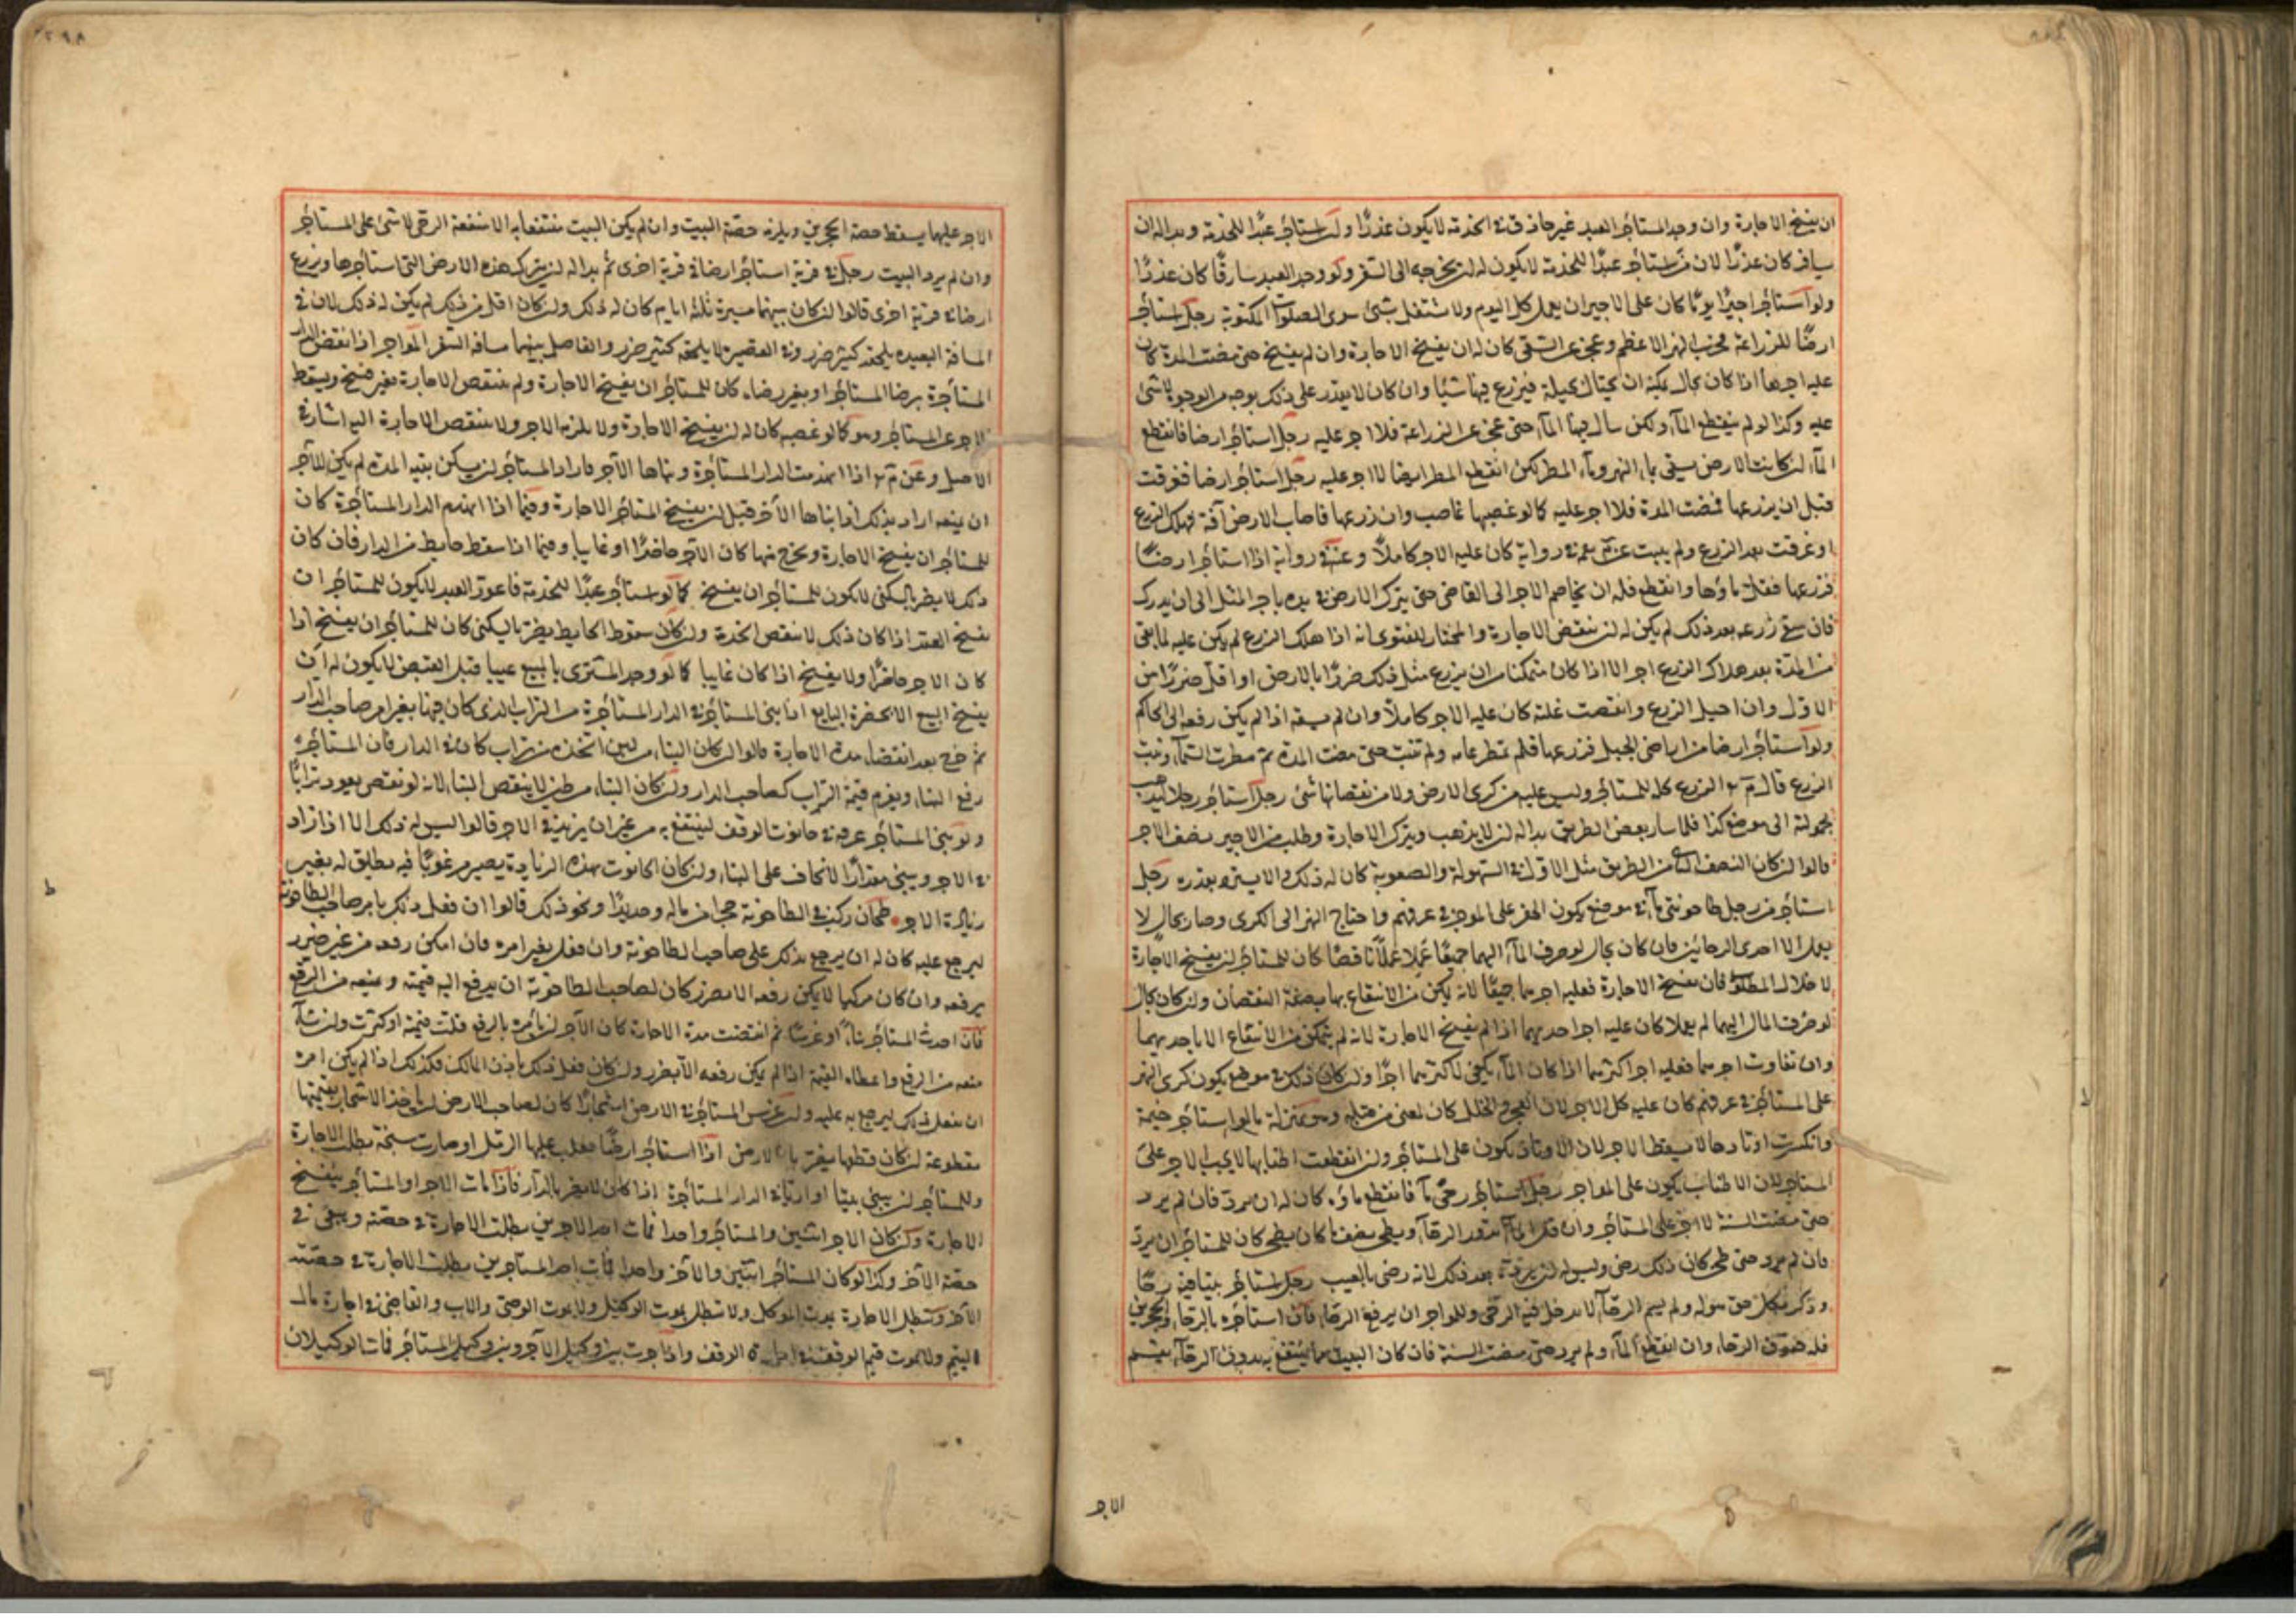 ان يفسخ الاجارة وان وجد المستأجر العبد غير حاذق في الخدمة لا يكون عذرًا ولو استأجر عبدًا للخدمة وبدا له ان
يسافر كان عذرًا لان من استأجر عبدًا للخدمة لا يكون له ان يخرجه الى السفر ولو وجد العبد سارقًا كان عذرًا
ولو استأجر اجيرًا يومًا كان على الاجير ان يعمل كل اليوم ولا يشتغل بشئ سوى الصلوات المكتوبة رجل استأجر
ارضًا للزراعة بجنب النهر الاعظم وعجز عن السقى كان له ان يفسخ الاجارة وان لم يفسخ حتى مضت المدة كان
عليه اجرها اذا كان بحال يمكنه ان يحتال بحيلة فيزرع فيها شيئا وان كان لا يقدر على ذلك بوجه من الوجوه لا شئ
عليه وكذا لو لم ينقطع الماء ولكن سال فيها الماء حتى عجز عن الزراعة فلا اجر عليه رجل استأجر ارضا فانقطع
الماء ان كانت الارض يسقى بماء النهر وماء المطر لكن انقطع المطر ايضا لا اجر عليه رجل استأجر ارضا فغرقت
قبل ان يزرعها فمضت المدة فلا اجر عليه كما لو غصبها غاصب وان زرعها فاصاب الارض آفة فهلك الزرع
او غرقت بعد الزرع ولم ينبت عن محمد رحمه في رواية كان عليه الاجر كاملًا وعنه في رواية اذا استأجر ارضًا
فزرعها فقل ماؤها وانقطع فله ان يخاصم الاجر الى القاضى حتى يترك الارض في يده باجر المثل الى ان يدرك
فان سقى زرعه بعد ذلك لم يكن له ان ينقض الاجارة والمختار للفتوى انه اذا هلك الزرع لم يكن عليه لما بقى
من المدة بعد هلاك الزرع اجر الا اذا كان متمكنا من ان يزرع مثل ذلك ضررًا بالارض او اقل ضررًا من
الاول وان اصيل الزرع وانتقصت غلته كان عليه الاجر كاملًا وان لم يسقه اذا لم يكن رفعه الى الحاكم
ولو استأجر ارضا من اراضى الجبل فزرعها فلم تمطر عامه ولم تنبت حتى مضت المدة ثم مطرت السماء ونبت
الزرع قال م ر الزرع كله للمستأجر وليس عليه من كرى الارض ولا من نقصانها شئ رجل استأجر رجلا ليذهب
بحمولة الى موضع كذا فلما سار بعض الطريق بدا له ان لا يذهب ويترك الاجارة وطلب من الاجير نصف الاجر
قالوا ان كان النصف الثانى من الطريق مثل الاول في السهولة والصعوبة كان له ذلك والا يسترد بقدره رجل
استأجر من رجل طاحونتى ماء في موضع يكون الحفر على المواجر في عرفهم فاحتاج النهر الى الكرى وصار بحال لا
يعمل الا احدى الرحائين فان كان بحال لو صرف الماء اليهما جميعًا عملا عملًا ناقصًا كان للمستأجر ان يفسخ الاجارة
لاختلال المطلوب فان لم يفسخ الاجارة فعليه اجرهما جميعًا لانه تمكن من الانتفاع بهما بصفة النقصان وان كان بحال
لو صرف الماء اليهما لم يعملا كان عليه اجر احديهما اذا لم يفسخ الاجارة لانه لم يتمكن من الانتفاع الا باحديهما
وان تفاوت اجرهما فعليه اجر اكثرهما اذا كان الماء يكفى لاكثرهما اجرًا وان كان ذلك في موضع يكون كرى النهر
على المستأجر في عرفهم كان عليه كل الاجر لان العجز والخلل كان لمعنى من قبله وهو بمنزلة ما لو استأجر خيمة
وانكسرت اوتادها لا يسقط الاجر لان الاوتاد يكون على المستأجر وان انقطعت اطنابها لا يجب الاجر على
المستأجر لان الاطناب يكون على المواجر رجل استأجر رحى ماء فانقطع ماؤه كان له ان يرد فان لم يرد
حتى مضت السنة لا اجر على المستأجر وان قل الماء وتدور الرحاء ويطحن نصف ما كان يطحن كان للمستأجر ان يرد
فان لم يرد حتى طحن كان ذلك رضى وليس له ان يرده بعد ذلك لانه رضى بالعيب رجل استأجر بيتا فيه رحًا
وذكر بكل حق هو له ولم يسم الرحاء لا يدخل فيه الرحى وللمواجر ان يرفع الرحاء فان استأجره بالرحاء والحجرين
فله حقوق الرحاء وان انقطع الماء ولم يرد حتى مضت السنة فان كان البيت مما ينتفع به بدون الرحاء يقسم
الاجر
الاجر عليهما يسقط حصة الحجرين ويلزمه حصة البيت وان لم يكن البيت منتفعا به الا منفعة الرحى لا شئ على المستأجر
وان لم يرد البيت رجل في قرية استأجر ارضا في قرية اخرى ثم بدا له ان يترك هذه الارض التى استأجرها ويزرع
ارضا في قرية اخرى قالوا ان كان بينهما مسيرة ثلثة ايام كان له ذلك وان كان اقل من ذلك لم يكن له ذلك لان في
المسافة البعيدة يلحقه كثير ضرر وفي القصيرة لا يلحقه كثير ضرر والفاصل بينهما مسافة السفر المواجر اذا نقض الدار
المستأجرة برضا المستأجر او بغير رضاه كان للمستأجر ان يفسخ الاجارة ولم ينتقض الاجارة بغير فسخ ويسقط
الاجر عن المستأجر وهو كما لو غصبه كان له ان يفسخ الاجارة ولا يلزمه الاجر ولا ينتقض الاجارة اليه اشار في
الاصل وعن م ر اذا انهدمت الدار المستأجرة وبناها الآجر فاراد المستأجر ان يسكن بقية المدة لم يكن للآجر
ان يمنعه اراد بذلك اذا بناها الآجر قبل ان يفسخ المستأجر الاجارة وفيما اذا انهدم الدار المستأجرة كان
للمستأجر ان يفسخ الاجارة ويخرج منها كان الآجر حاضرًا او غايبا وفيما اذا سقط حايط من الدار فان كان
ذلك لا يضر بالسكنى لا يكون للمستأجر ان يفسخ كما لو استأجر عبدًا للخدمة فاعور العبد لا يكون للمستأجر ان
يفسخ العقد اذا كان ذلك لا ينقص الخدمة وان كان سقوط الحايط يضر بالسكنى كان للمستأجر ان يفسخ اذا
كان الاجر حاضرًا ولا يفسخ اذا كان غايبا كما لو وجد المشترى بالمبيع عيبا قبل القبض لا يكون له ان
يفسخ البيع الا بحضرة البايع اذا بنى المستأجر في الدار المستأجرة من التراب الذى كان فيها بغير امر صاحب الدار
ثم خرج بعد انقضاء مدة الاجارة قالوا ان كان البناء من لبن اتخذه من تراب كان في الدار فان المستأجر
رفع البناء ويغرم قيمة التراب لصاحب الدار وان كان البناء من طين لا ينقض البناء لانه لو نقض يعود ترابًا
ولو بنى المستأجر غرفة في حانوت الوقف لينتفع به من غير ان يزيد في الاجر قالوا ليس له ذلك الا اذا زاد
في الاجر ويبنى مقدارًا لا يخاف على البناء وان كان الحانوت بهذه الزيادة يصير مرغوبًا فيه يطلق له بغير
زيادة الاجر طحان ركب في الطاحونة حجرا من ماله وحديدًا ونحو ذلك قالوا ان فعل ذلك بامر صاحب الطاحونة
ليرجع عليه كان له ان يرجع بذلك على صاحب الطاحونة وان فعل بغير امره فان امكن رفعه من غير ضرر
يرفعه وان كان مركبا لا يمكن رفعه الا بضرر كان لصاحب الطاحونة ان يدفع اليه قيمته ويمنعه من الرفع
فان احدث المستأجر بناء او غرسًا ثم انقضت مدة الاجارة كان الآجر ان يامره بالرفع قلت قيمته او كثرت وان شاء
منعه من الرفع واعطاه القيمة اذا لم يكن رفعه الا بضرر وان كان فعل ذلك باذن المالك فكذلك اذا لم يكن امره
ان يفعل ذلك ليرجع به عليه ولو غرس المستأجر في الارض اشجارًا كان لصاحب الارض ان ياخذ الاشجار بقيمتها
مقطوعة ان كان قطعها يضر بالارض اذا استأجر ارضًا فغلب عليها الرمل او صارت سبخة بطلت الاجارة
وللمستأجر ان يبنى بيتا او اريًا في الدار المستأجرة اذا كان لا يضر بالدار فاذا مات الاجر او المستأجر ينفسخ
الاجارة ولو كان الاجر اثنين والمستأجر واحدا فمات احد الاجرين بطلت الاجارة في حصته ويبقى في
حصة الآخر وكذا لو كان المستأجر اثنين والآجر واحدا فمات احد المستأجرين بطلت الاجارة في حصته
الآخر وتبطل الاجارة بموت الموكل ولا تبطل بموت الوكيل ولا بموت الوصى والاب والقاضى في اجارة مال
اليتيم ولا بموت قيم الوقف في اجارة الوقف واذا جرت بين وكيل الآجر وبين وكيل المستأجر فمات الوكيلان